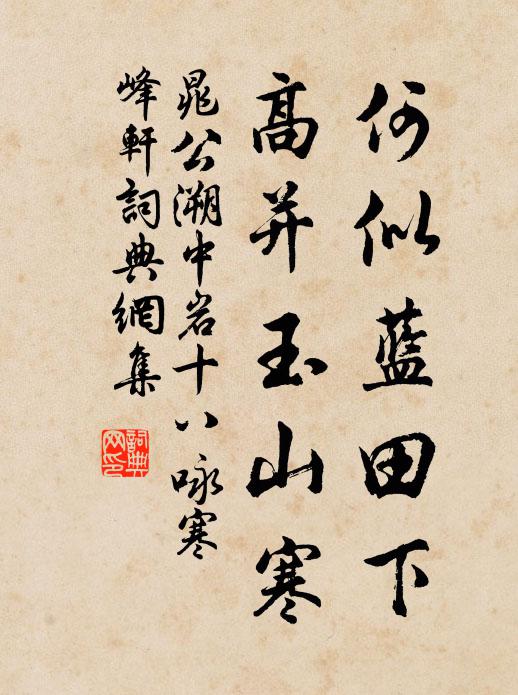 何似藍田下
高并玉山寒
晁公溯中岩十八咏寒
峰軒詞典網集
詞典网印